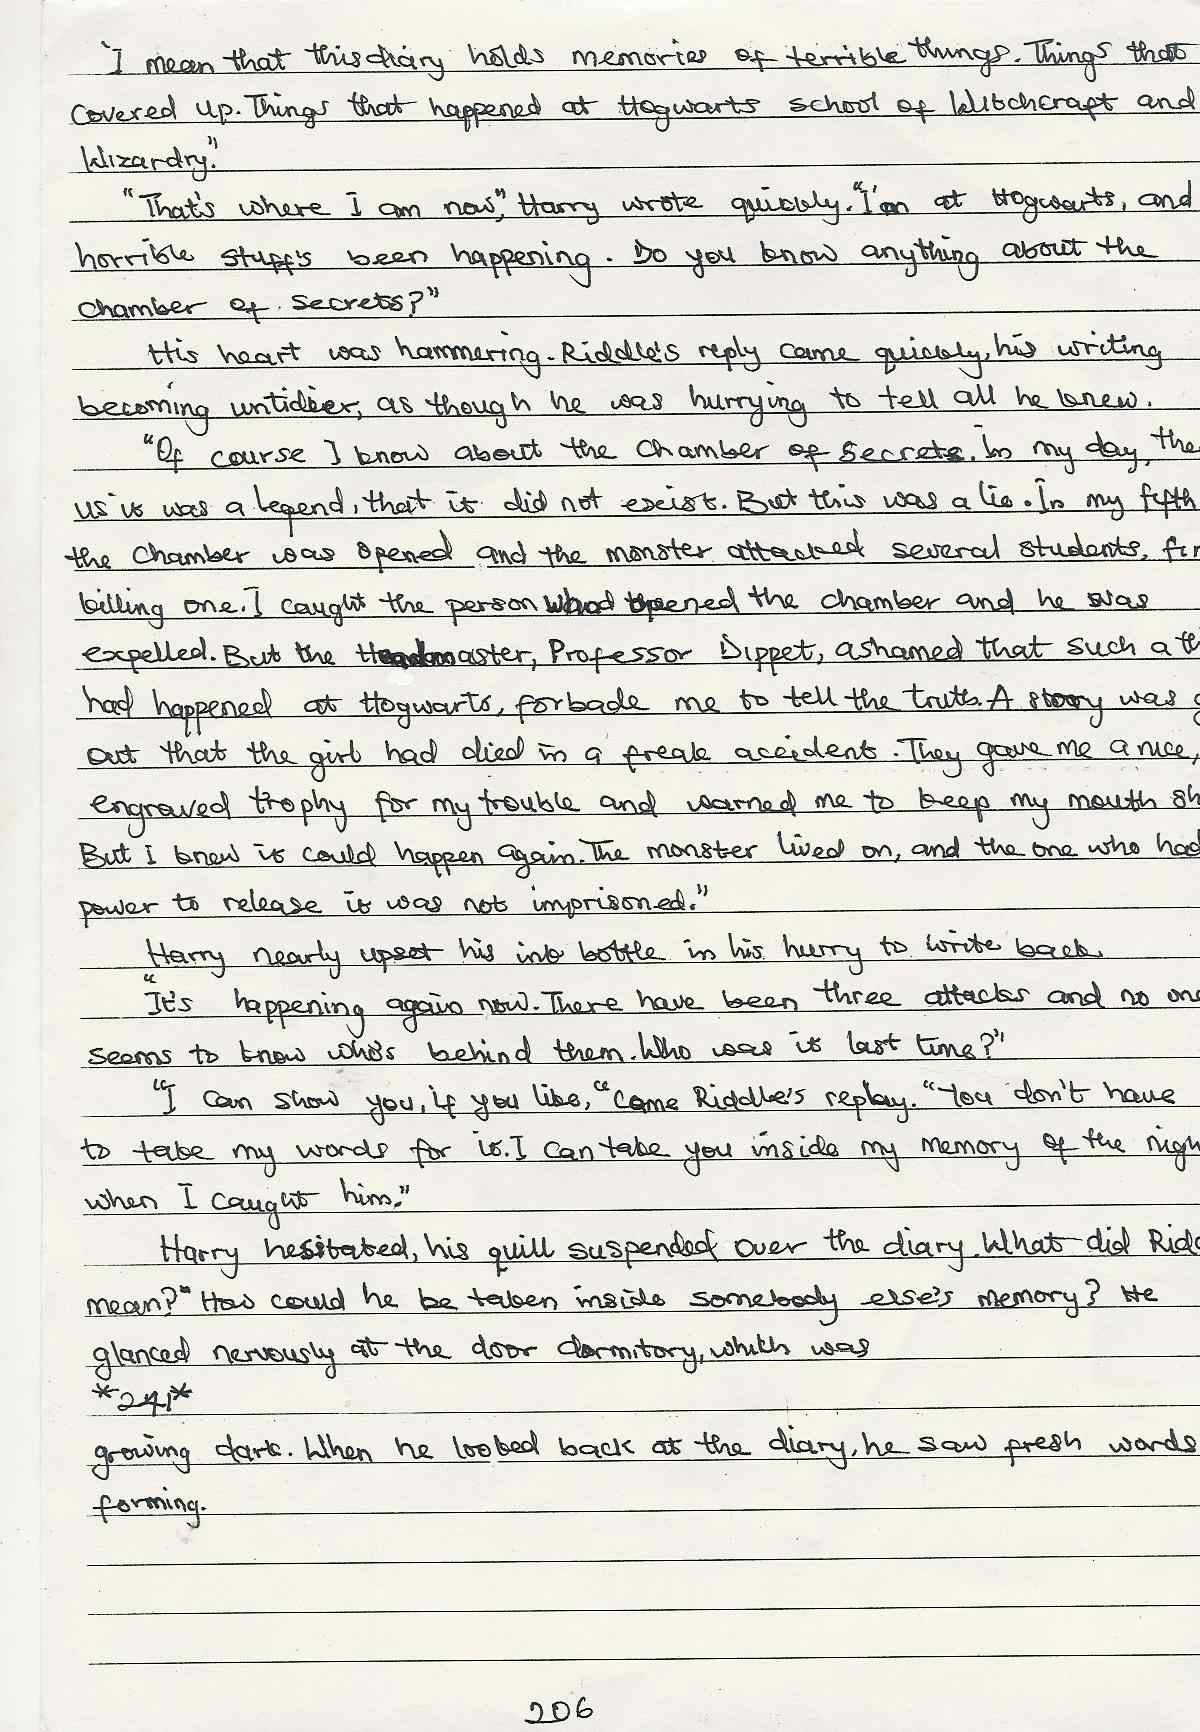 "I mean that this diary holds memories of terrible things. Things that
covered up. Things that happened at Hogwarts school of Witchcraft and
Wizardry."
"That's where I am now", Harry wrote quickly. "I'm at Hogwarts, and
horrible stuff's been happening. Do you know anything about the
chamber of secrets?"
His heart was hammering. Riddle's reply came quickly, his writing
becoming untidier, as though he was hurrying to tell all he knew.
"Of course I know about the chamber of secrets. In my day, the
us it was a legend, that it did not exist. But this was a lie. In my fifth
the chamber was opened and the monster attacked several students, fin
killing one. I caught the person who'd opened the chamber and he was
expelled. But the Headmaster, Professor Dippet, ashamed that such a th
had happened at Hogwarts, forbade me to tell the truth. A story was g
out that the girl had died in a freak accident. They gave me a nice,
engraved trophy for my trouble and warned me to keep my mouth sh
But I knew it could happen again. The monster lived on, and the one who had
power to release it was not imprisoned."
Harry nearly upset his ink bottle in his hurry to write back.
"It's happening again now. There have been three attacks and no one
seems to know who's behind them. Who was it last time?"
"I can show you, if you like," came Riddle's replay. "You don't have
to take my words for it. I can take you inside my memory of the nigh
when I caught him."
Harry hesitated, his quill suspended over the diary. What did Ridd
mean?" How could he be taken inside somebody else's memory? He
glanced nervously at the door dormitory, which was
*241*
growing dark. When he looked back at the diary, he saw fresh words
forming.
206